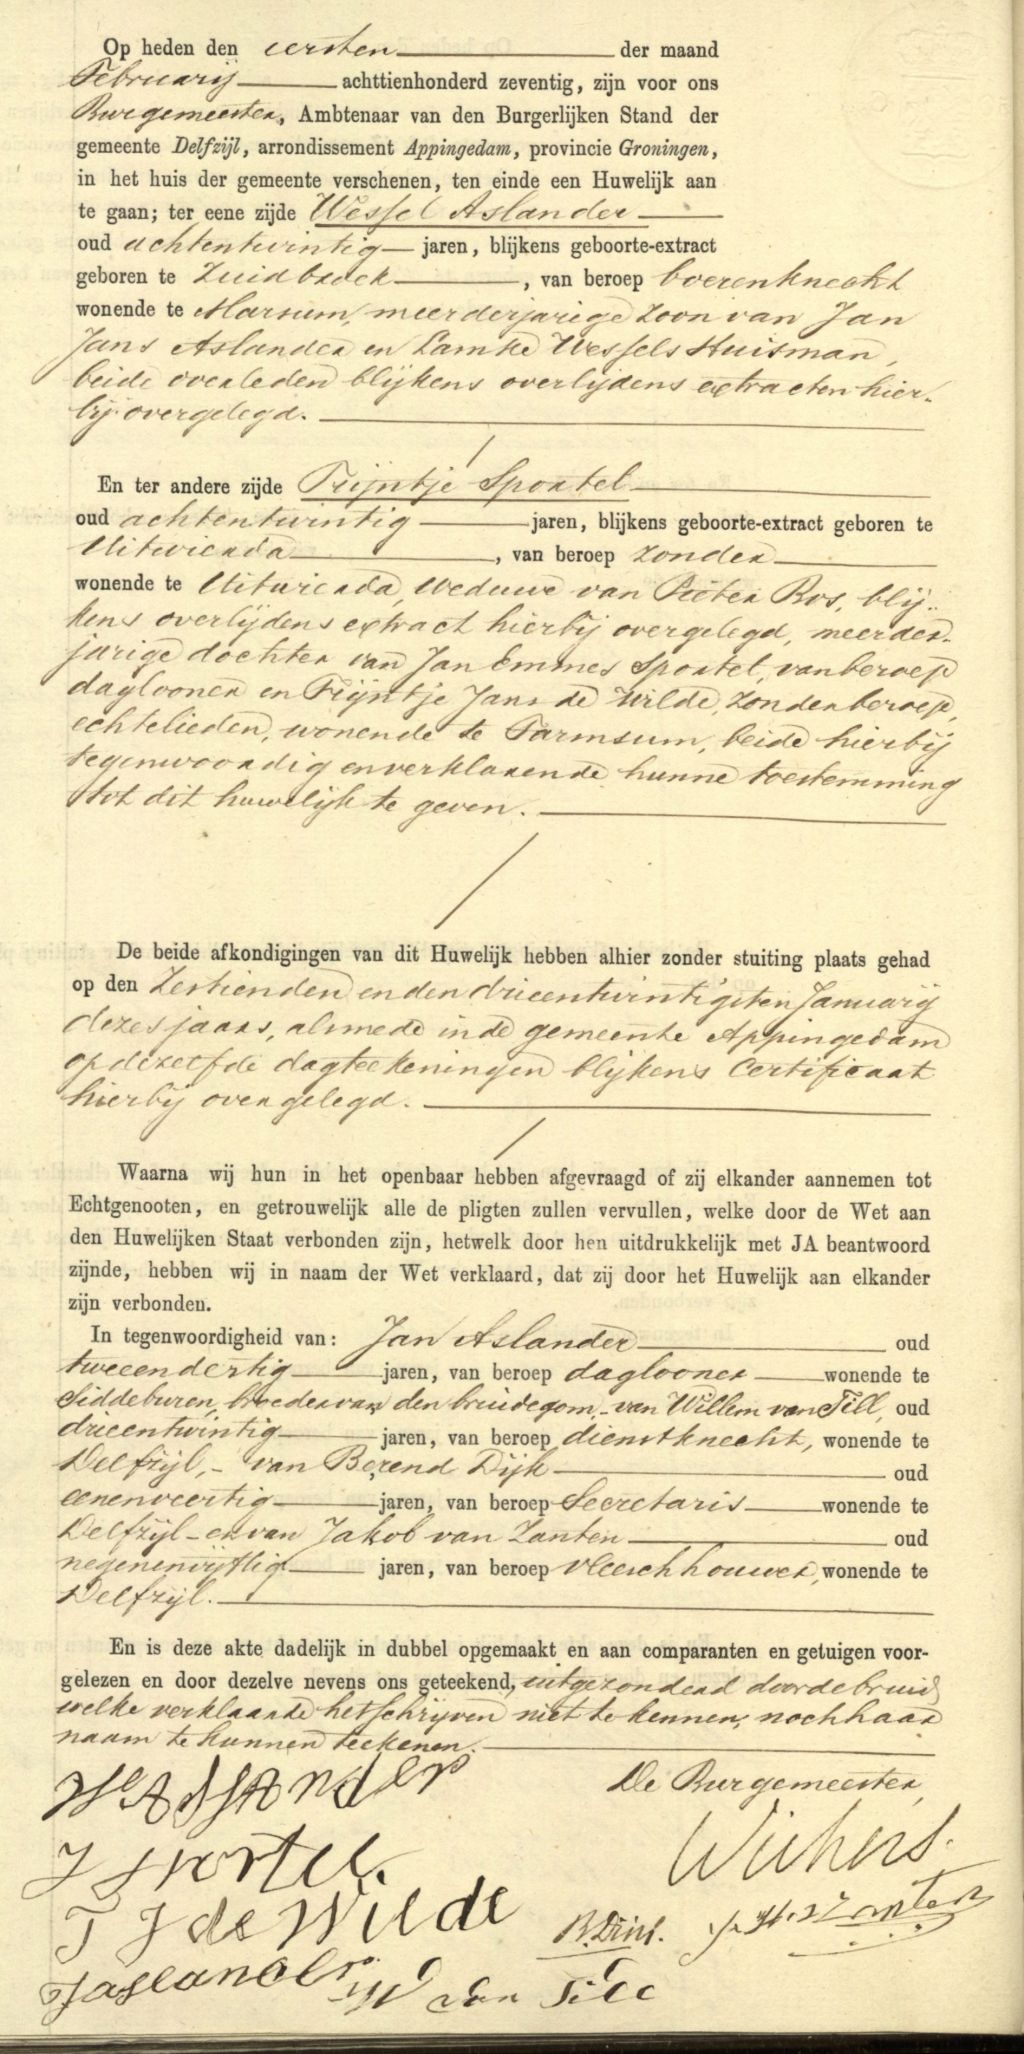 Op heden den eersten der maand
Februarij achttienhonderd zeventig, zijn voor ons
Burgemeester, Ambtenaar van den Burgerlijken Stand der
gemeente Delfzijl, arrondissement Appingedam, provincie Groningen,
in het huis der gemeente verschenen, ten einde een Huwelijk aan
te gaan; ter eene zijde Wessel Aslander
oud achtentwintig jaren, blijkens geboorte-extract
geboren te Zuidbroek, van beroep boerenknecht
wonende te Marsum, meerderjarige zoon van Jan
Jans Aslander en Lamke Wessels Huisman,
beide overleden blijkens overlijdens extracten hier-
bij overgelegd.
En ter andere zijde Trijntje Sportel
oud achtentwintig jaren, blijkens geboorte-extract geboren te
Uitwierda, van beroep zonder
wonende te Uitwierda, weduwe van Pieter Bos, blij-
kens overlijdens extract hierbij overgelegd, meerder-
jarige dochter van Jan Emmes Sportel, van beroep
daglooner en Trijntje Jans de Wilde, zonder beroep,
echtelieden, wonende te Farmsum, beide hierbij
tegenwoordig en verklarende hunne toestemming
tot dit huwelijk te geven.
De beide afkondigingen van dit Huwelijk hebben alhier zonder stuiting plaats gehad
op den Zestienden en den drieentwintigsten Januarij
dezes jaars, alsmede in de gemeente Appingedam
op dezelfde dagteekeningen blijkens Certificaat
hierbij overgelegd.
Waarna wij hun in het openbaar hebben afgevraagd of zij elkander aannemen tot
Echtgenooten, en getrouwelijk alle de pligten zullen vervullen, welke door de Wet aan
den Huwelijken Staat verbonden zijn, hetwelk door hen uitdrukkelijk met JA beantwoord
zijnde, hebben wij in naam der Wet verklaard, dat zij door het Huwelijk aan elkander
zijn verbonden.
In tegenwoordigheid van: Jan Aslander oud
tweeendertig jaren, van beroep daglooner wonende te
Siddeburen, broeder van den bruidegom,- van Willem van Till, oud
drieentwintig jaren, van beroep dienstknecht, wonende te
Delfzijl,- van Berend Dijk oud
eenenveertig jaren, van beroep Secretaris wonende te
Delfzijl- en van Jakob van Zanten oud
negenenvijftig jaren, van beroep vleeschhouwer, wonende te
Delfzijl.
En is deze akte dadelijk in dubbel opgemaakt en aan comparanten en getuigen voor-
gelezen en door dezelve nevens ons geteekend, uitgezonderd door de bruid
welke verklaarde het schrijven niet te kennen, noch haar
naam te kunnen teekenen.
W Aslander De Burgemeester,
J Sportel Wichers.
T J de Wilde
J Aslander W van Till